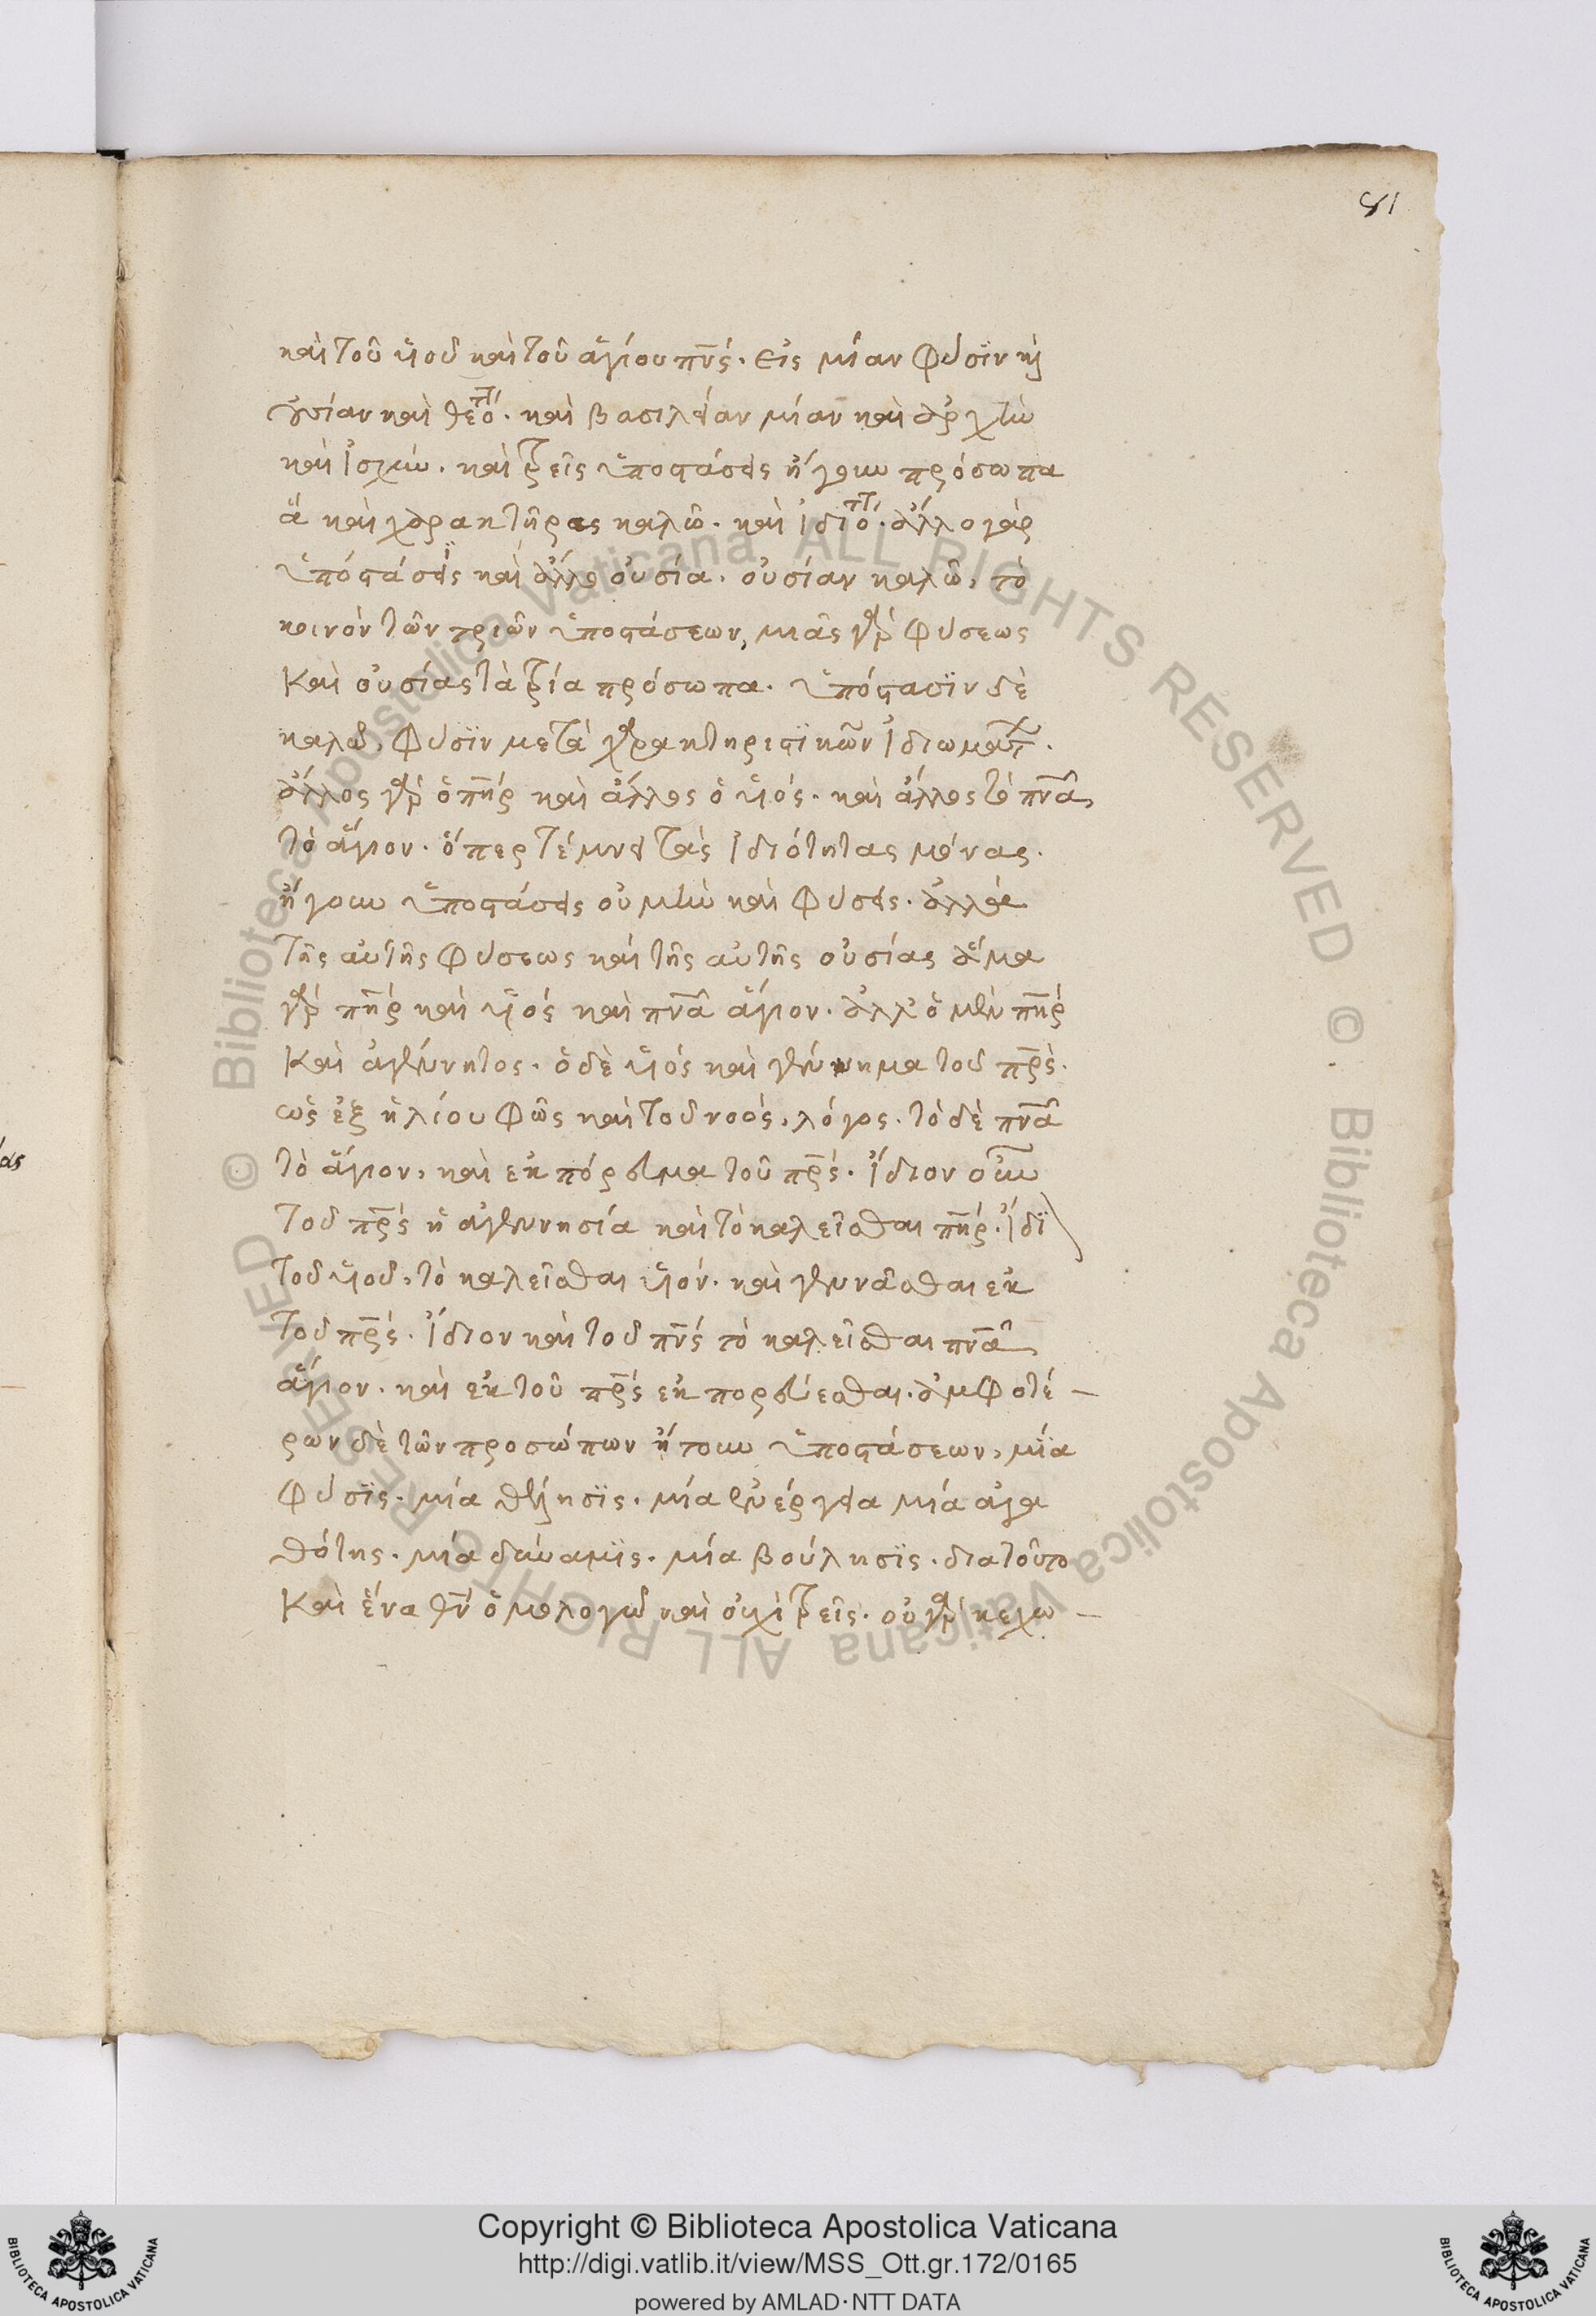 81
καὶ τοῦ υἱοῦ καὶ τοῦ ἁγίου πν̅ς. εἰς μίαν φύσϊν κ
οὐσίαν καὶ θεότητ. καὶ βασιλείαν μίαν καὶ ἀρχὴν
καὶ ἰσχύν. καὶ τρεῖς ὑποστάσεις ἤγουν πρόσωπα
ἃ καὶ χαρακτῆρας καλῶ. καὶ ἰδιότητ. ἄλλο γὰρ
ὑπόστάσϊς καὶ ἄλλο οὐσία. οὐσίαν καλῶ, τὸ
κοινὸν τῶν τριῶν ὑποστάσεων, μιᾶς γὰρ φύσεως
Καὶ οὐσίας τὰ τρία πρόσωπα. ὑπόστασϊν δὲ
καλῶ, φύσϊν μετὰ χαρακτηριστϊκῶν ἰδιωμάτ.
ἄλλος γὰρ ὁ π̅η̅ρ καὶ ἄλλος ὁ υἱός. καὶ ἄλλος τὸ πν̅α,
τὸ ἅγιον. ὅπερ τέμνει τὰς ἰδιότητας μόνας.
ἤγουν ὑποστάσεις οὐ μὴν καὶ φύσεις. ἀλλὰ
τῆς αὐτῆς φύσεως καὶ τῆς αὐτῆς οὐσίας ἅμα
γὰρ π̅η̅ρ καὶ υἱός καὶ πν̅α ἅγιον. ἀλλ' ὁ μὲν π̅η̅ρ
Καὶ ἀγέννητος. ὁ δὲ υἱός καὶ γέννημα τοῦ π̅ρ̅ς.
ὡς ἐξ ἡλίου φῶς καὶ τοῦ νοός, λόγος. τὸ δὲ πν̅α
τὸ ἅγιον, καὶ ἐκπόρευμα τοῦ π̅ρ̅ς. ἴδιον οὖν
τοῦ π̅ρ̅ς ἡ ἀγεννησία καὶ τὸ καλεῖσθαι π̅η̅ρ. ἴδϊ
τοῦ υἱοῦ, τὸ καλεῖσθαι υἱόν. καὶ γεννᾶσθαι ἐκ
τοῦ π̅ρ̅ς. ἴδιον καὶ τοῦ πν̅ς τὸ καλεῖσθαι πν̅α,
ἅγιον. καὶ ἐκ τοῦ π̅ρ̅ς ἐκπορεύεσθαι. ἀμφοτέ–
ρων δὲ τῶν προσώπων ἤτουν ὑποστάσεων, μϊα
φύσϊς. μία θέλησϊς. μία ἐνέργεια μία ἀγα
θότης. μία δύναμϊς. μία βούλησϊς. διατοῦτο
Καὶ ἕνα θ̅ν ὁμολογῶ καὶ οὐχὶ τρεῖς. οὐ γὰρ κεχω–
Copyright © Biblioteca Apostolica Vaticana
http://digi.vatlib.it/view/MSS_Ott.gr.172/0165
powered by AMLAD·NTT DATA
BIBLIOTECA APOSTOLICA VATICANA
BIBLIOTECA APOSTOLICA VATICANA
© Biblioteca Apostolica Vaticana ALL RIGHTS RESERVED © Biblioteca Apostolica Vaticana ALL RIGHTS RESERVED